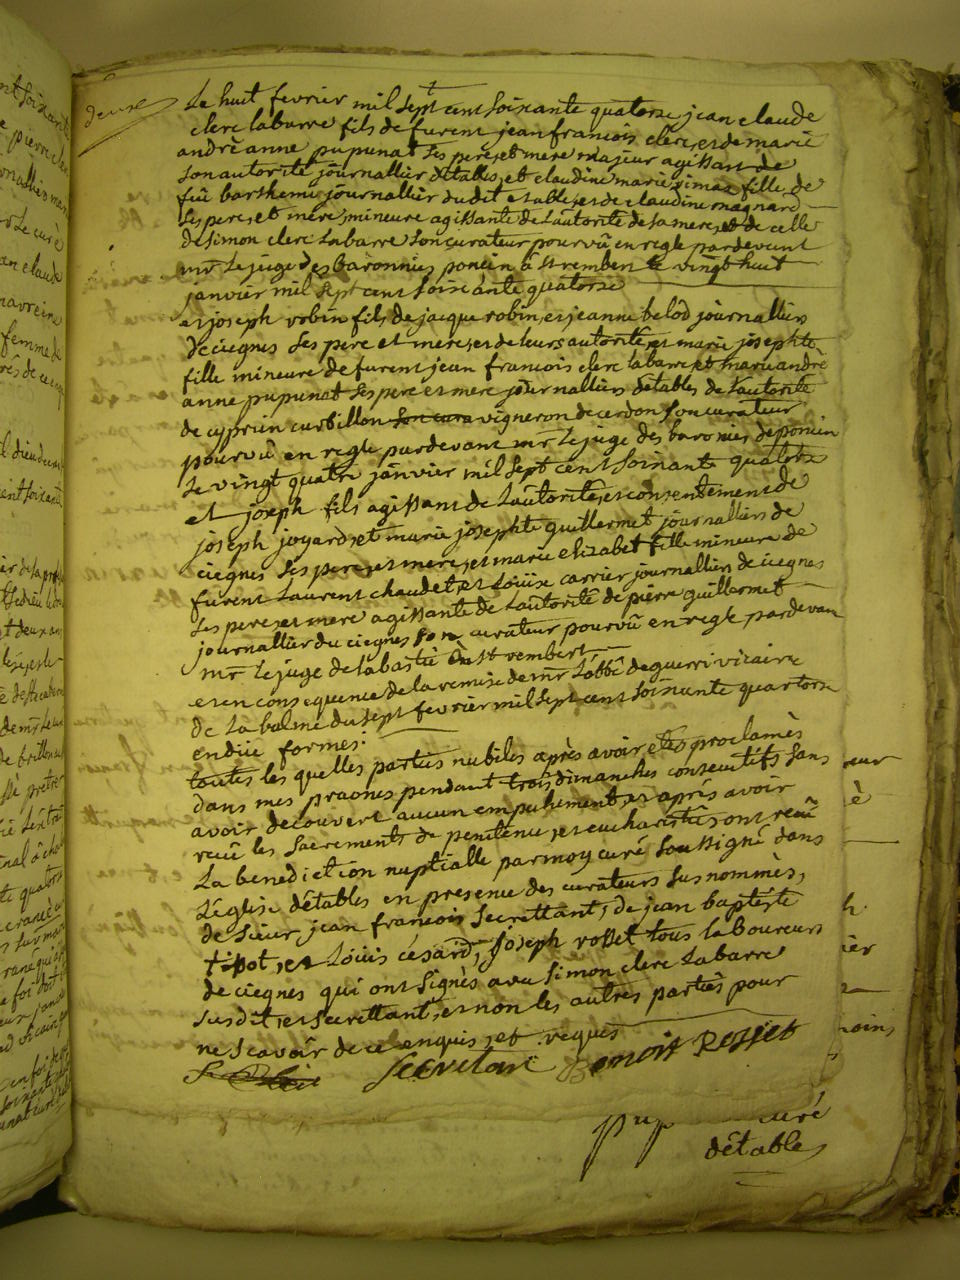 deuxe
Le huit fevrier mil sept cent soixante quatorse jean claude
clerc labarre fils de furent jean francois clerc, et de marie
andrè anne pupunat ses pere, et mere majeur agissant de
son autorité journallier détables, et claudine marie simaz fille de
fûe barthemi journallier du dit etable, et de claudine magnard
ses pere, et mère, mineure agissante de l'autorité de sa mere, et de celle
de simon clerc labarre son curateur pourvû en regle pardevant
mr le juge des baronnies poncin à st rembert le vingt huit
janvier mil sept cent soixante quatorse
et joseph robin fils de jacque robin, et jeanne belod journalliers
de ciegnes ses pere et mere, et de leurs autorité, et marie josephte
fille mineure de furent jean francois clerc labarre, et marie andrè
anne pupunat ses pere et mere journalliers détables de l'autorité
de cyprien curbillon son cura vigneron de cerdon son curateur
pourvû en regle pardevant mr le juge des baronies de poncin
le vingt quatre janvier mil sept cent soixante quatorse
et joseph fils agissant de l'autorité, et consentement de
joseph joyard, et marie josephte guillermet journalliers de
ciegnes ses pere, et mere, et marie elizabet fille mineure de
furent laurent chaudet, et loüise carrier journallier de ciegnes
ses pere, et mere agissante de l'autorité de pierre guillermet
journallier du ciegnes son curateur pourvû en regle pardevant
mr le juge de labatie à st rembert
et en consequence de la remise de mr l'abbé deguerri vicaire
de la balme du sept fevrier mil sept cent soixante quartorse
en düe formes:
toutes les quelles parties nubiles après avoir etés proclamès
dans mes praones pendant trois dimanches consecutifs sans
avoir decouvert aucun empêchement, et après avoir
recüe les sacrements de penitence, et eucharistie, ont reçû
la benediction nuptialle par moy curé soussigné dans
l'église détables en presence des curateurs susnommès,
de sieur jean francois secrettant, de jean baptéste
tissot, et loüis césard, joseph rosset tous laboureurs
de ciegnes qui ont signès avec simon clerc labarre
susdit, et secrettant, et non les autres parties pour
ne scavoir de ce enquis, et requis
Secretant Benoit Rosset
pup curé
détables